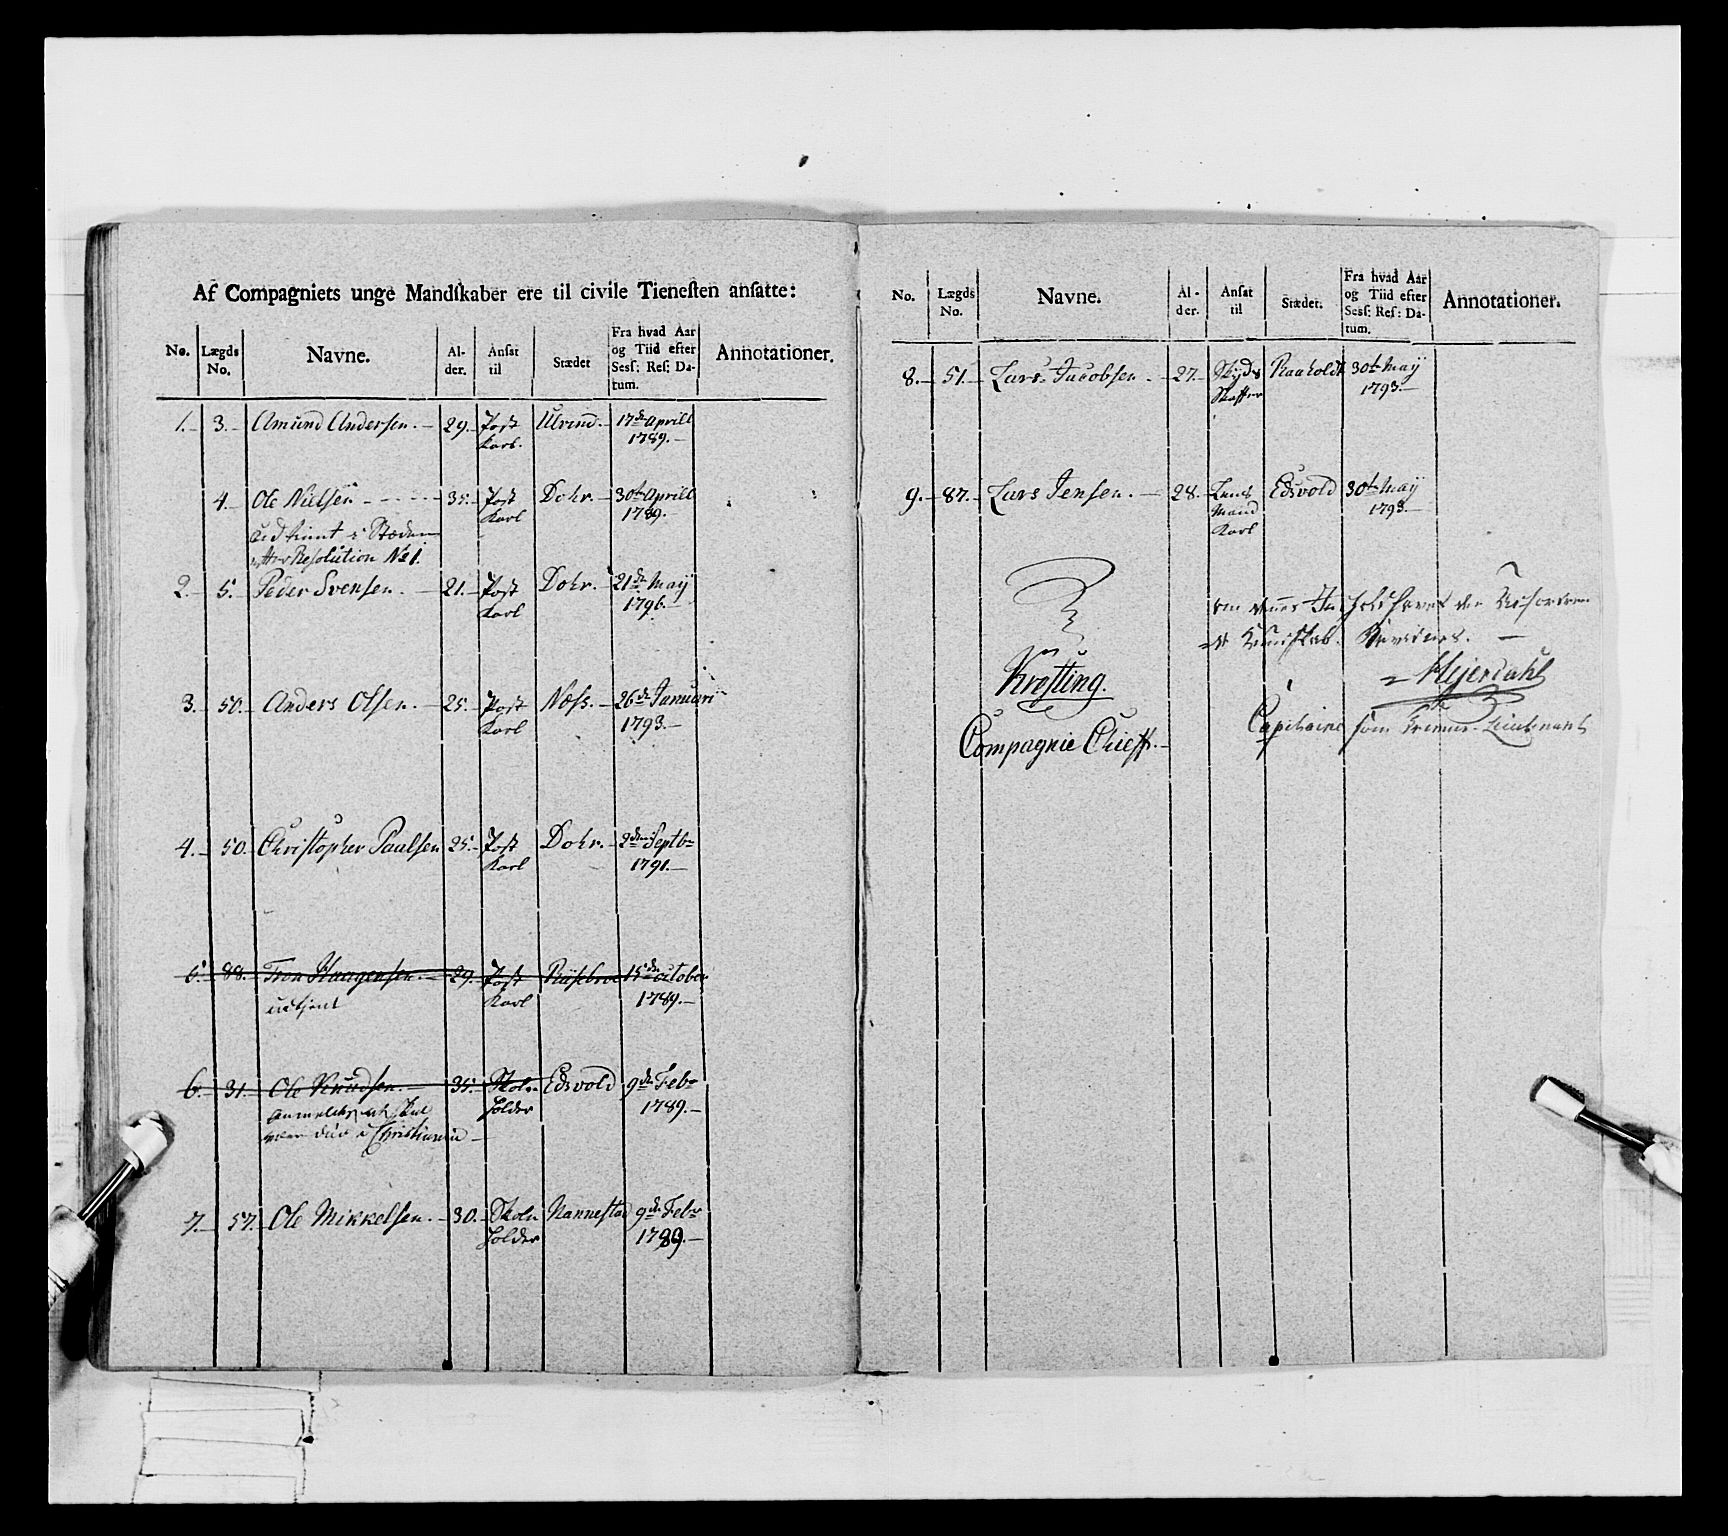 Af Compagniets unge Mandskaber ere til civile Tienesten ansatte:
No. Lægds No. Navne. Al-der. Ansat til Stædet Fra hvad Aar og Tiid efter Sess: Res: Da-tum. Annotationer.
1. 3. Amund Andersen. 29. Post Karl. Ulvind. 17de Aprill 1789.
4. Ole Nielsen 35. Post Karl Dohr. 30te Aprill 1789.
efter Resolution No 1.
2. 5. Peder Svensen. 21. Post Karl Dohr. 21de Maÿ 1796.
3. 50. Anders Olsen. 25. Post Karl Næss. 26de Januari 1793.
4. 50. Christopher Paalsen 25. Post Karl Dohr. 2den Septb 1791.
5. 88. Tron Haagensen. 29. Post Karl 15de october 1789.
udtjent
6. 31. Ole Knudsen. 35. Skole holder Edsvold 9de Feb 1789.
Christiania
7. 57. Ole Mikkelsen. 30. Skole holder Nannestad 9de Feb 1789.
No. Lægds No. Navne. Al-der. Ansat til Stædet. Fra hvad Aar og Tiid efter Sess: Res: Da-tum. Annotationer.
8. 51. Lars Jacobsen. 27. Skyds Skaffer Raaholdt 30te Maÿ 1793.
9. 87. Lars Jensen. 28. Lens Mand Karl Edsvold 30te Maÿ 1793.
Krefting.
Compagnie Chieff.
Hejerdahl
Capitaine som Premier-Lieutenant